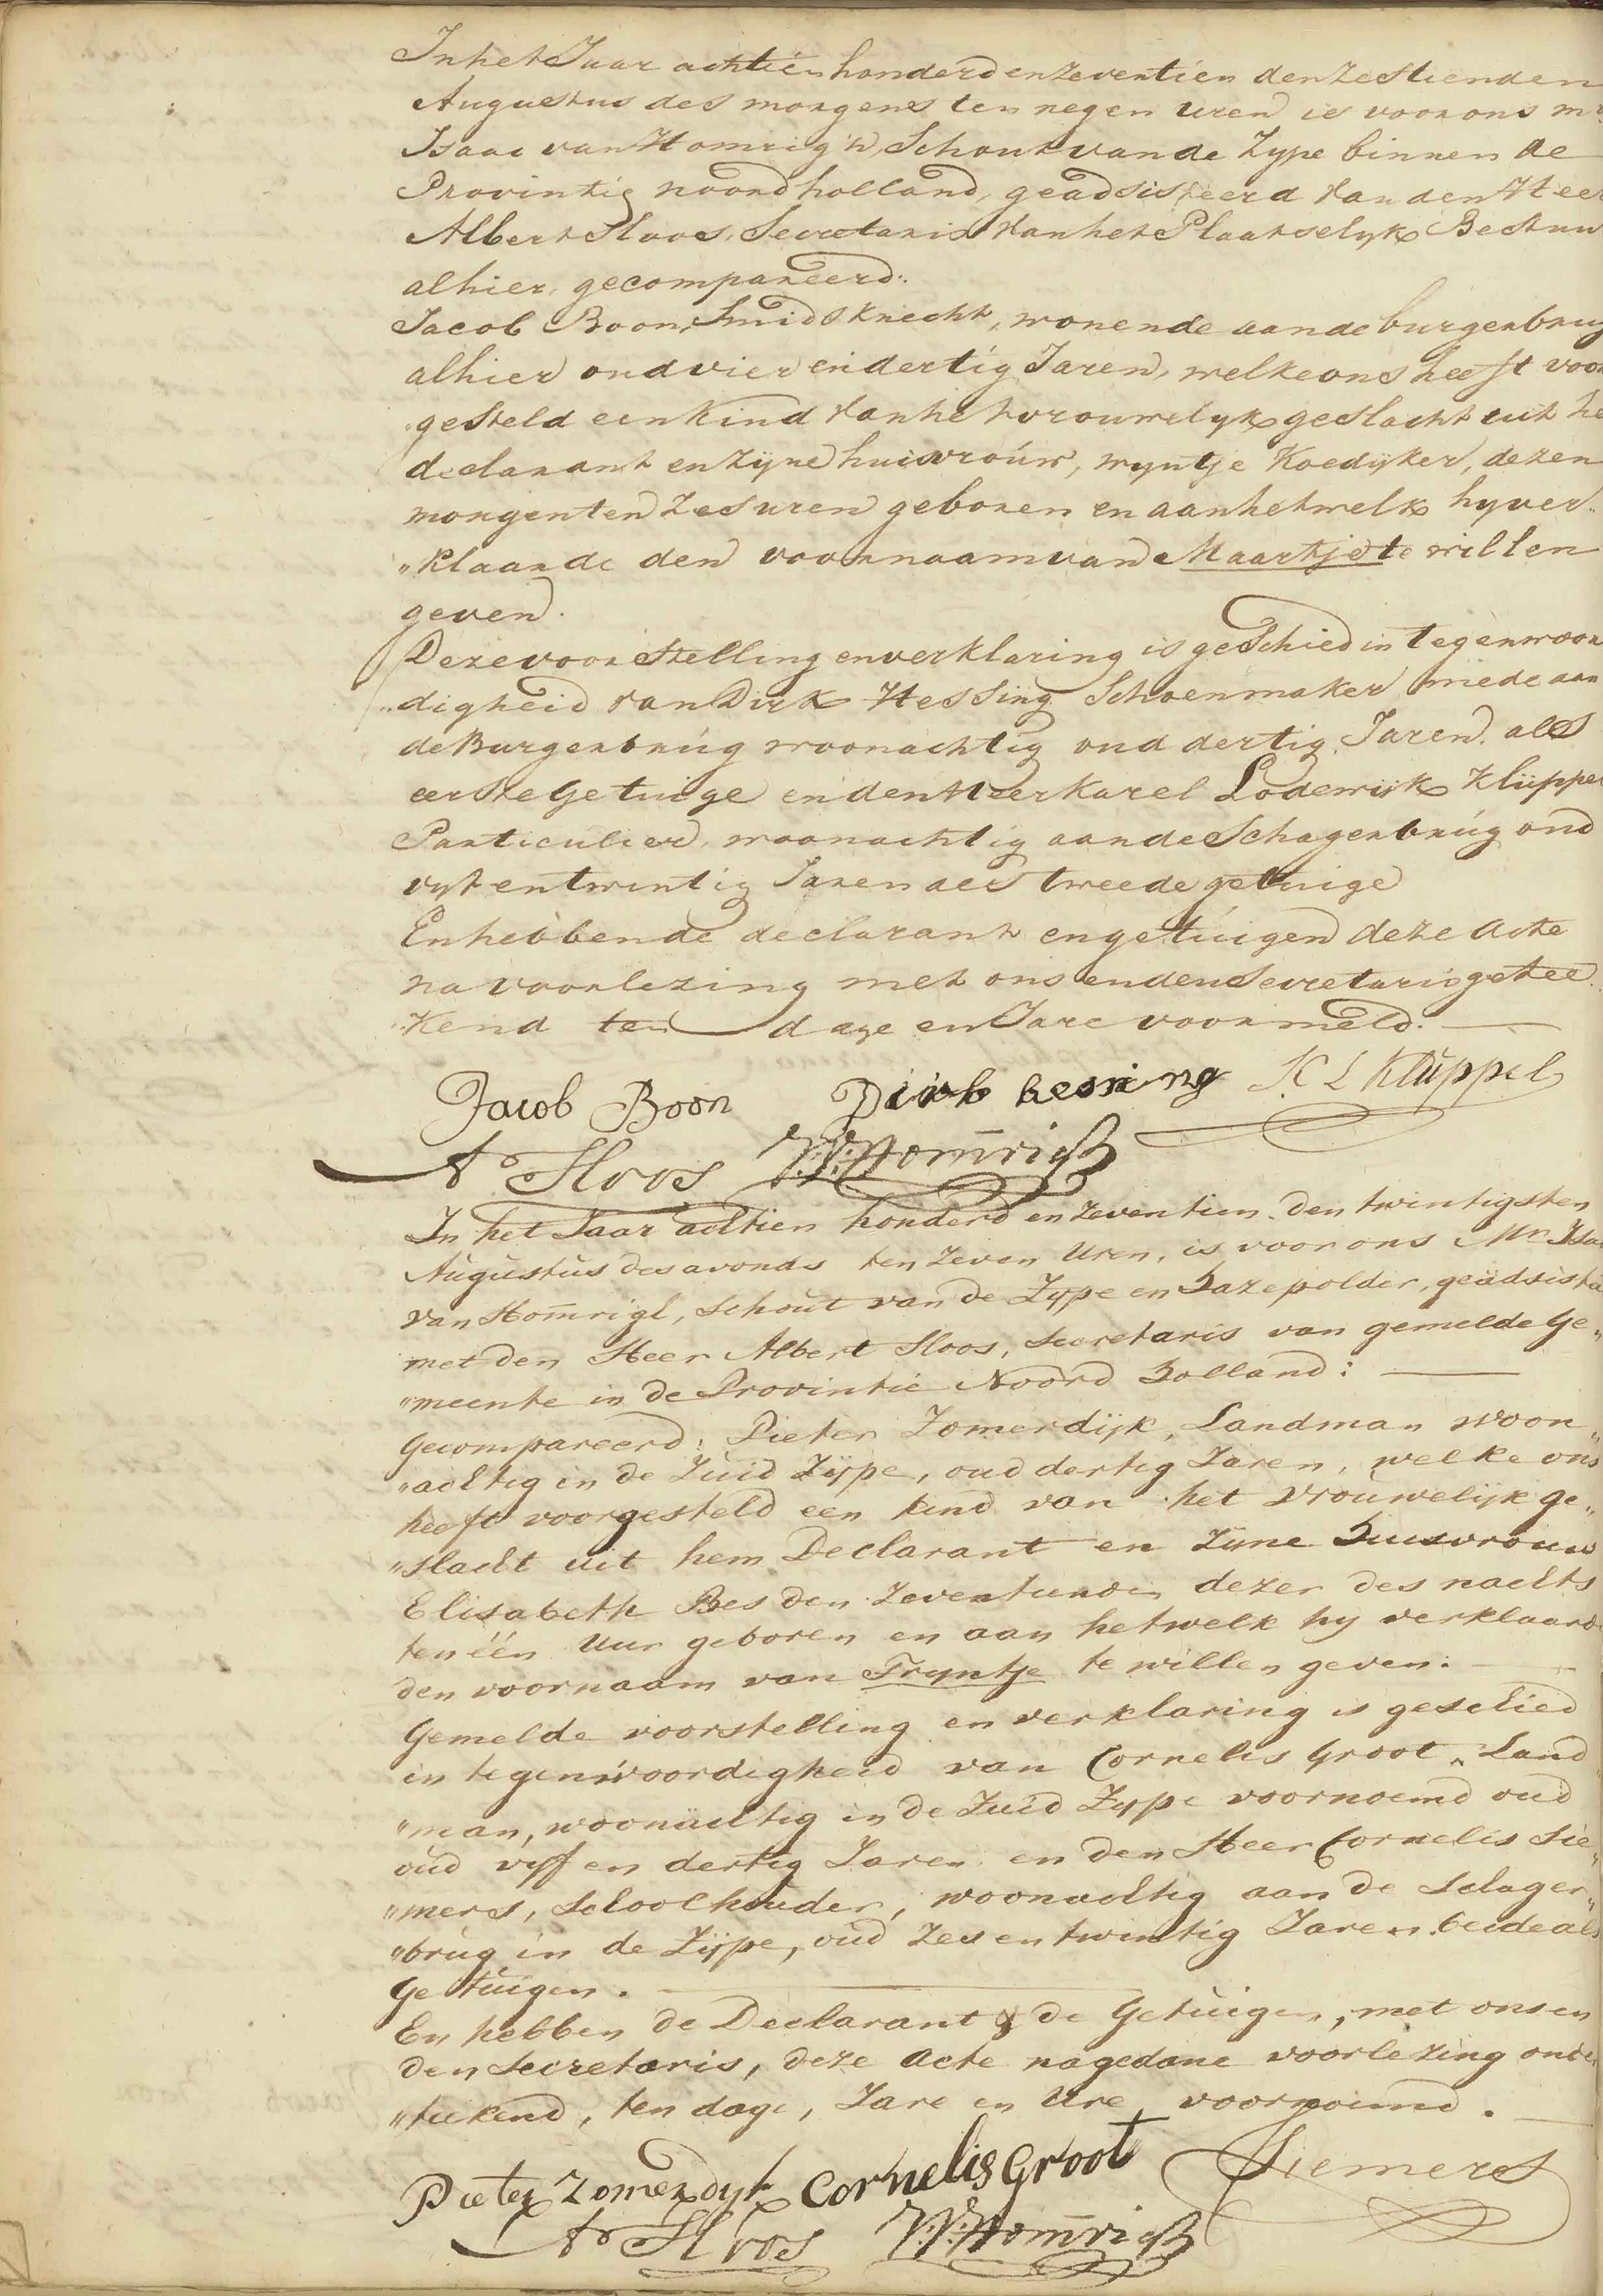 In het Jaar achtien honderd en zeventien den zestienden
Augustus des morgens ten negen uren is voor ons mr
Isaac van Homrigh, Schout van de Zype binnen de
Provintie noordholland, geadsisteerd van den Heer
Albert Sloos, Secretaris van het Plaatselyk Bestuu
alhier, gecompareerd:
Jacob Boon, Smidsknecht, wonende aan de burgerbrug
alhier oud vier en dertig Jaren, welke ons heeft voor
gesteld een kind van het vrouwelyk geslacht uit he
declarant en zyne huisvrouw, wyntje Koedijker, dezen
morgen ten zes uren geboren en aan hetwelk hy ver„
„klaarde den voornaam van Maartje te willen
geven.
Deze voorstelling en verklaring is geschied in tegenwoor
„digheid van Dirk Hessing Schoenmaker mede aan
de Burgerbrug woonachtig oud dertig Jaren. als
eerste Getuige en den Heer Karel Lodewijk Klüppel
Particulier, woonachtig aan de Schagerbrug oud
vyf en twintig Jaren als tweede getuige
En hebben de declarant en getuigen deze acte
na voorlezing met ons en den Secretaris getee„
„kend ten dage en Jare voormeld.
Jacob Boon Dirk hessing K L Klüppel
A Sloos V. Hom̄righ
In het Jaar achtien honderd en zeventien den twintigsten
Augustus des avonds ten zeven Uren, is voor ons Mr Isaa
van Hom̄righ, Schout van de Zype en Hazepolder, geädsiste
met den Heer Albert Sloos, Secretaris van gemelde Ge„
„meente in de Provintie Noord Holland:
Gecompareerd: Pieter Zomerdijk, Landman woon„
„achtig in de Zuid Zijpe, oud dertig Jaren, welke ons
heeft voorgesteld een kind van het Vrouwelijk ge„
„slacht uit hem Declarant en Zijne Huisvrouw
Elisabeth Bes den Zeventienden dezer des nachts
ten één Uur geboren en aan hetwelk hy verklaarde
den voornaam van Tryntje te willen geven.
Gemelde voorstelling en verklaring is geschied
in tegenwoordigheid van Cornelis Groot, Land
„man, woonachtig in de Zuid Zype voornoemd oud
oud vyf en dertig Jaren en den Heer Cornelis Sie„
„mers, schoolhouder, woonachtig aan de Schager„
„brug in de Zijpe, oud Zes en twintig Jaren. beide als
Getuigen.
En hebben de Declarant & de Getuigen, met ons en
den Secretaris, deze Acte na gedane voorlezing onde
„teekend, ten dage, Jare en Ure voornoemd.
Pieter Zomerdyk Cornelis Groot Siemers
A Sloos V. Hom̄righ